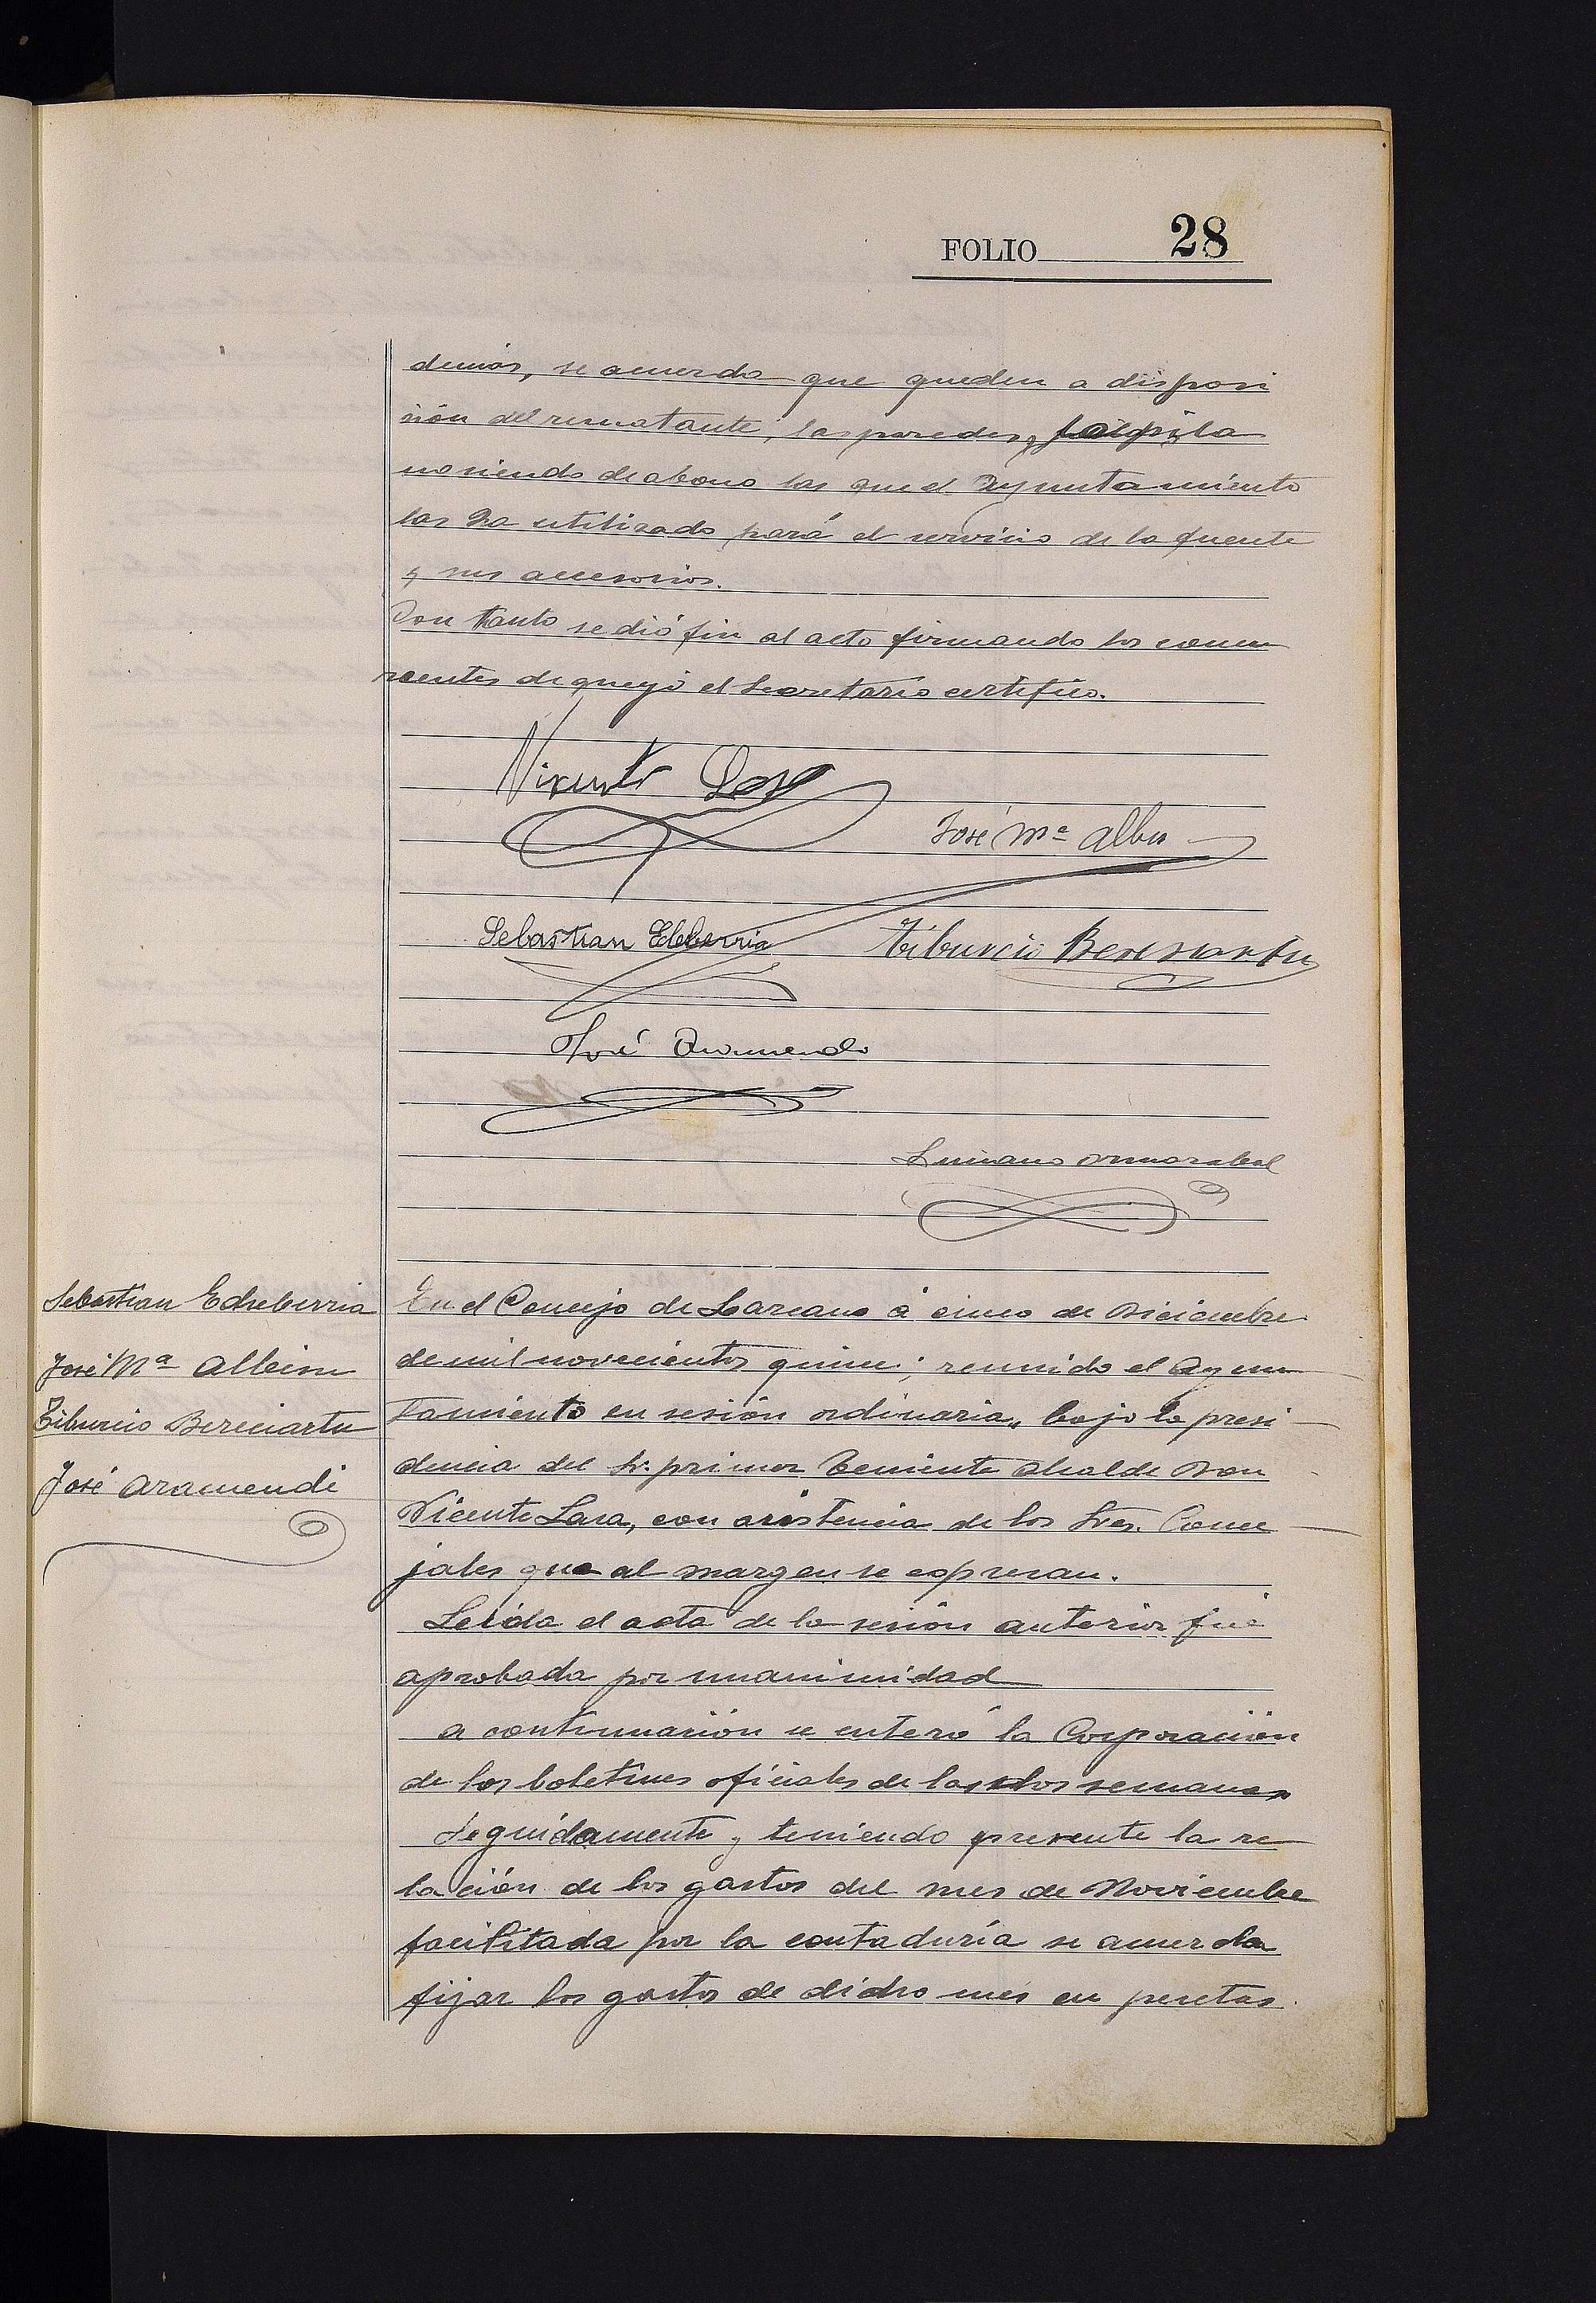 FOLIO 28
demás, se acuerda que queden a disposi
ción del rematante, las paredes y
no siendo de abono las que el Ayuntamiento
las ha utilizado pará el servicio de la fuente
y sus accesorios.
Con tanto se dió fin al acto firmando los concu
rrentes de que yo el Secretario certifico.
Vicente Lasa
José Mª Albisu
Sebastian Echeberria Tiburcio Bereciartu
José Aramendi
Luciano
Sebastian Echeberria
José Mª Albisu
Tiburcio Bereciartu
José Aramendi
En el Concejo de Lazcano á cinco de Diciembre
de mil novecientos quince; reunido el Ayun
tamiento en sesión ordinaria, bajo la presi
dencia del Sr. primer Teniente Alcalde Don
Vicente Lasa, con asistencia de los Sres. Conce
jales que al margen se expresan.
Leida el acta de la sesión anterior fué
aprobada por unanimidad
A continuación se enteró la Corporación
de los boletines oficiales de las dos semanas
Seguidamente y teniendo presente la re
lación de los gastos del mes de Noviembre
facilitada por la contaduría se acuerda
fijar los gastos de dicho mes en pesetas